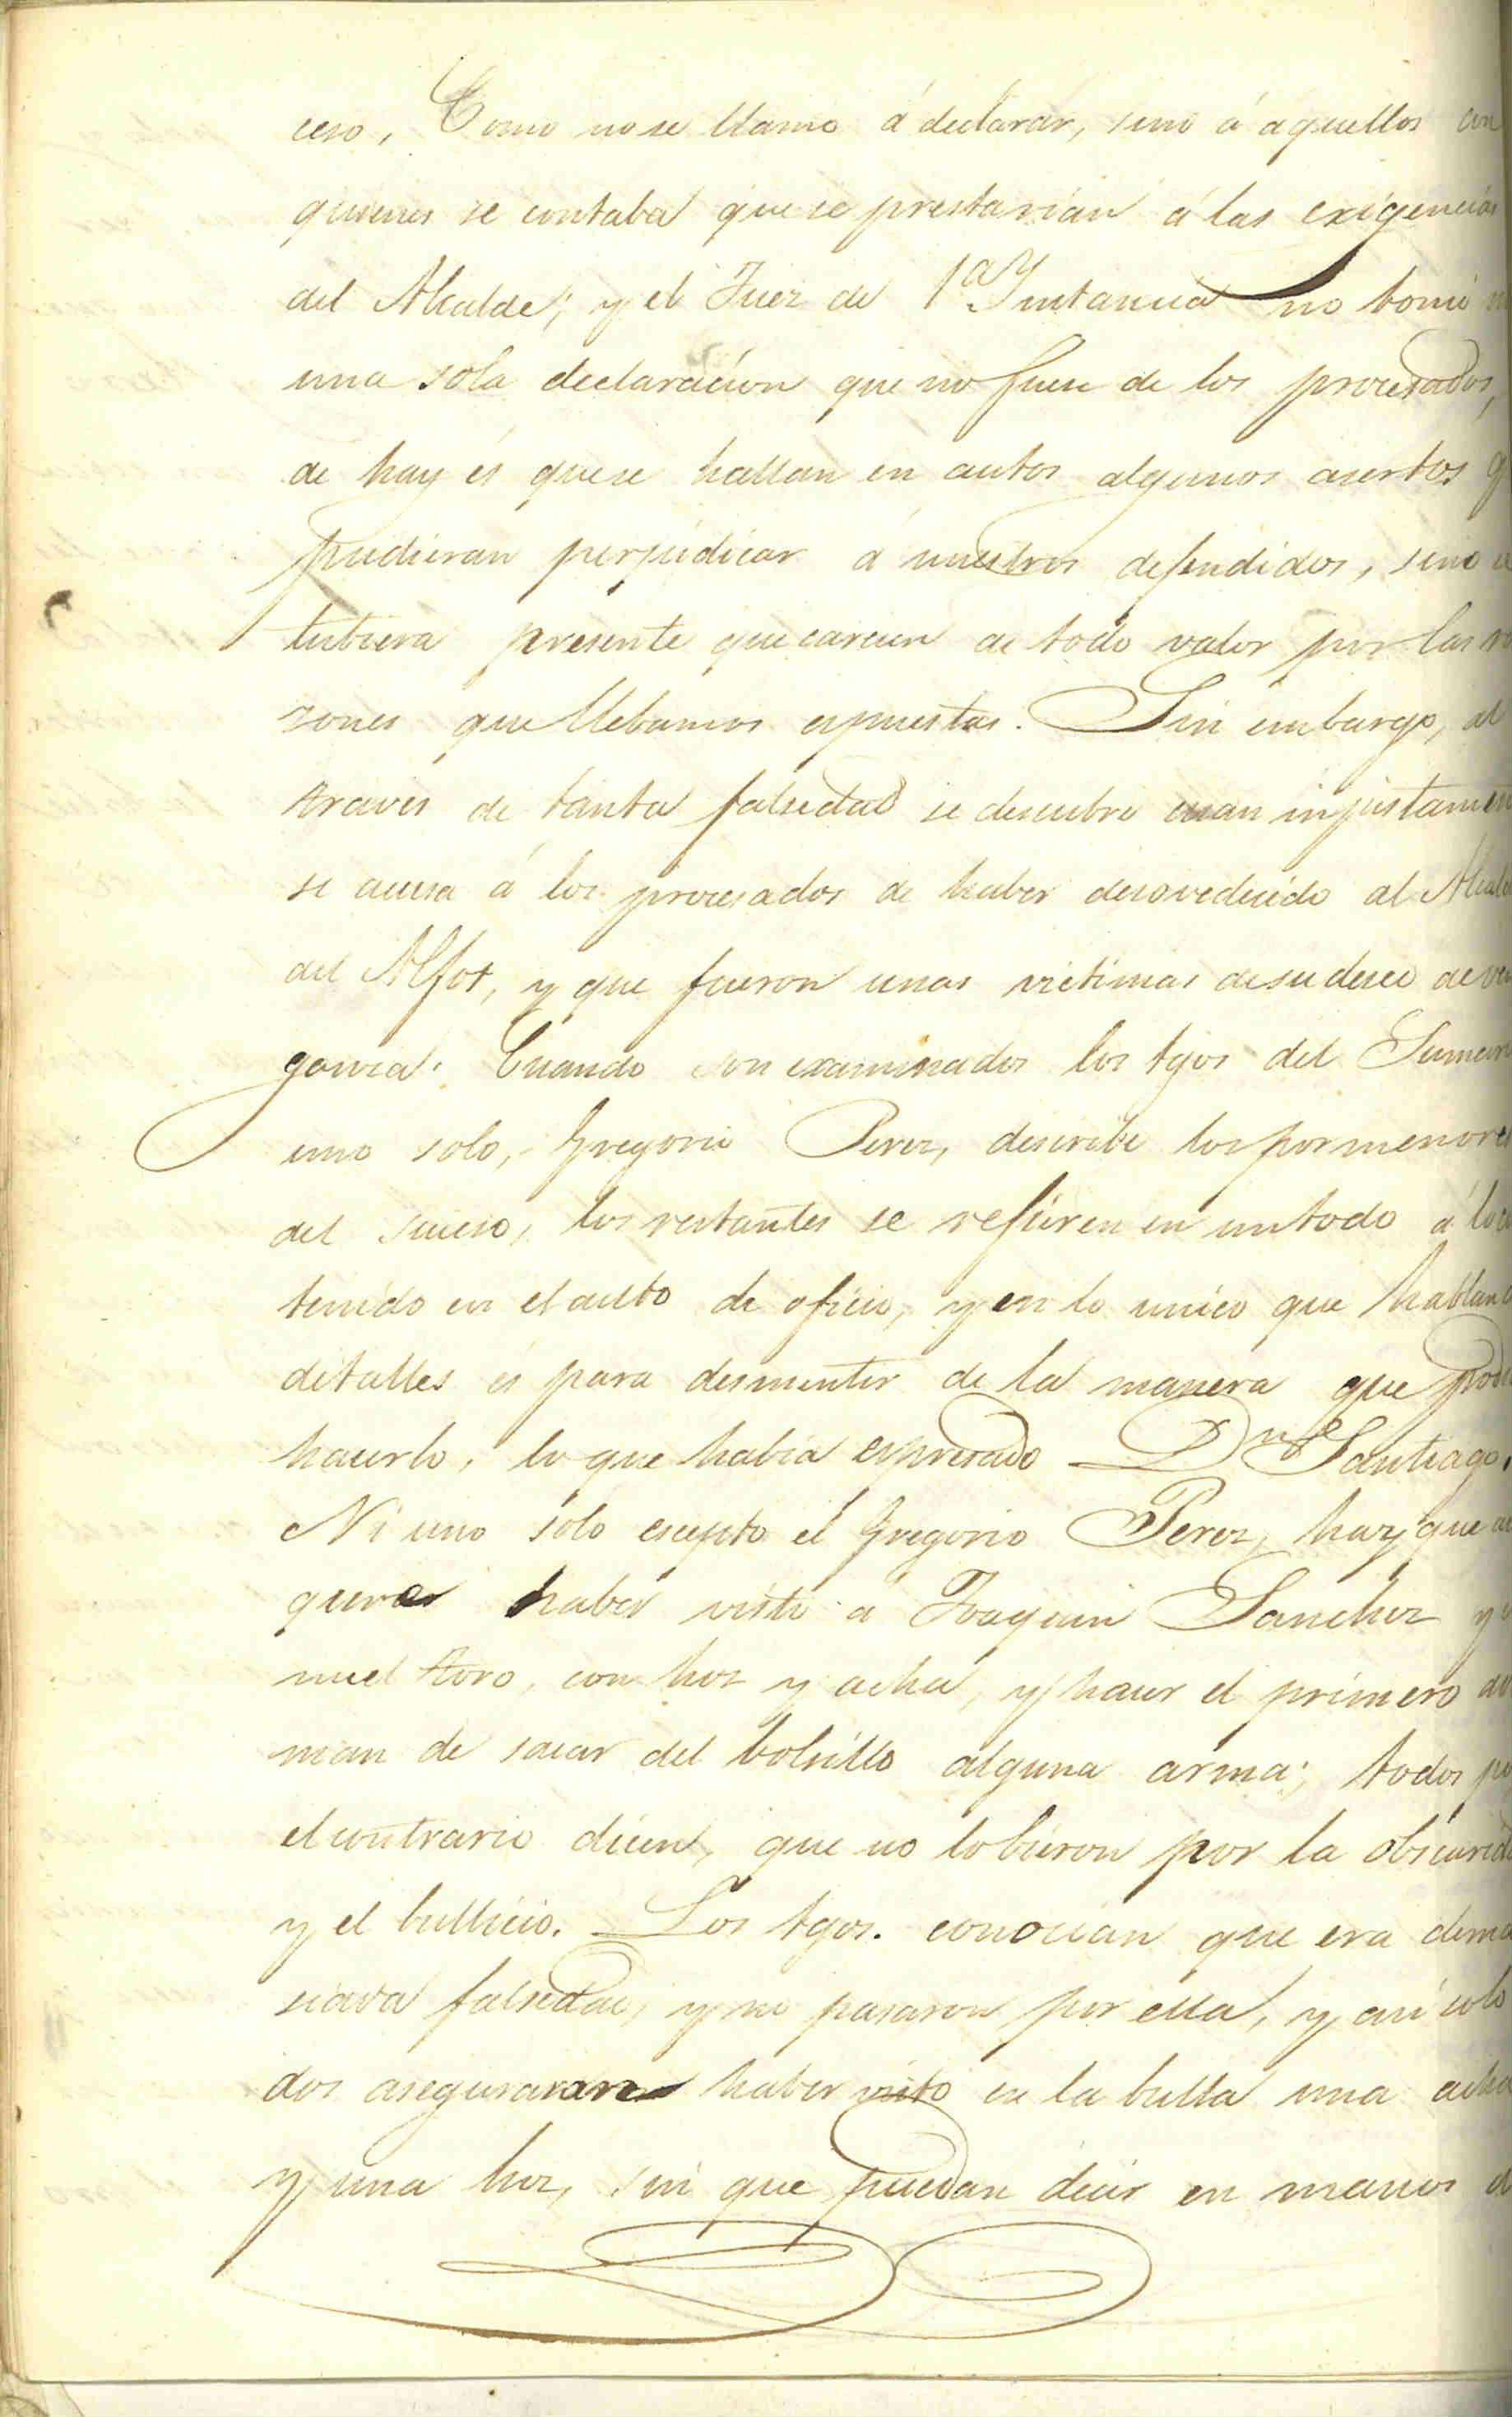 ceso, Como no se llamo á declarar, sino á aquellos con
quienes se contaba que se prestarian á las exigencias
del Alcalde; y el Juez de 1ª Ynstancia no tomó
una sola declaracion que no fuese de los procesados,
de hay és que se hallan en autos algunos asertos q
pudieran perjudicar á nuestros defendidos, sino
tubiera presente que carecen de todo valor por las
zones que llebamos espuestas. Sin embargo, al
traves de tanta falsedad se descubre cuan injustamen
se acusa á los procesados de haber desovedecido al Alcald
del Alfoz, y que fueron unas victimas de su deseo de ven
ganza. Cuando son examinados los tgos del Sumari
uno solo, Gregorio Perez, describe los pormenores
del suceso, los restantes se refieren en un todo á lo
tenido en el auto de oficio, y en lo unico que hablan
detalles és para desmentir de la manera que pod
hacerlo, lo que habia espresado Dn Santiago.
Ni uno solo escepto el Gregorio Perez, hay que
gurar haber visto á Joaquin Sanchez y
nuel toro, con hoz y acha, y hacer el primero
man de sacar del bolsillo alguna arma; todos
el contrario dicen, que no lo bieron por la obscurid
y el bullicio. Los tgos. conocian que era dema
siava falsedad, y no pasaron por ella, y asi solo
dos aseguraran haber visto en la bulla una acha
y una hoz, sin que puedan decir en manos d